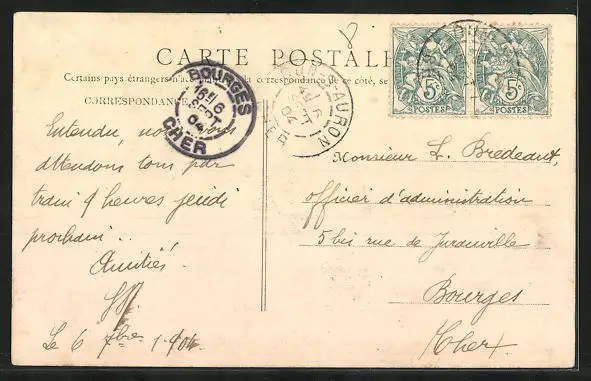 CARTE POSTALE
Certains pays étrangers n'acceptant la correspondance de ce côté, se
CORRESPONDANCE
BOURGES
16 6
SEPT
04
CHER
DUN-S-AURON
6
SEPT
04
CHER
8
5c 5c
POSTES POSTES
Entendu, nous vous
attendons tous par
train 9 heures jeudi
prochain..
Amitiés.
Le 6 7bre 1904
Monsieur L. Bredeaut,
officier d'administration
5 bis rue de Juranville
Bourges
Cher